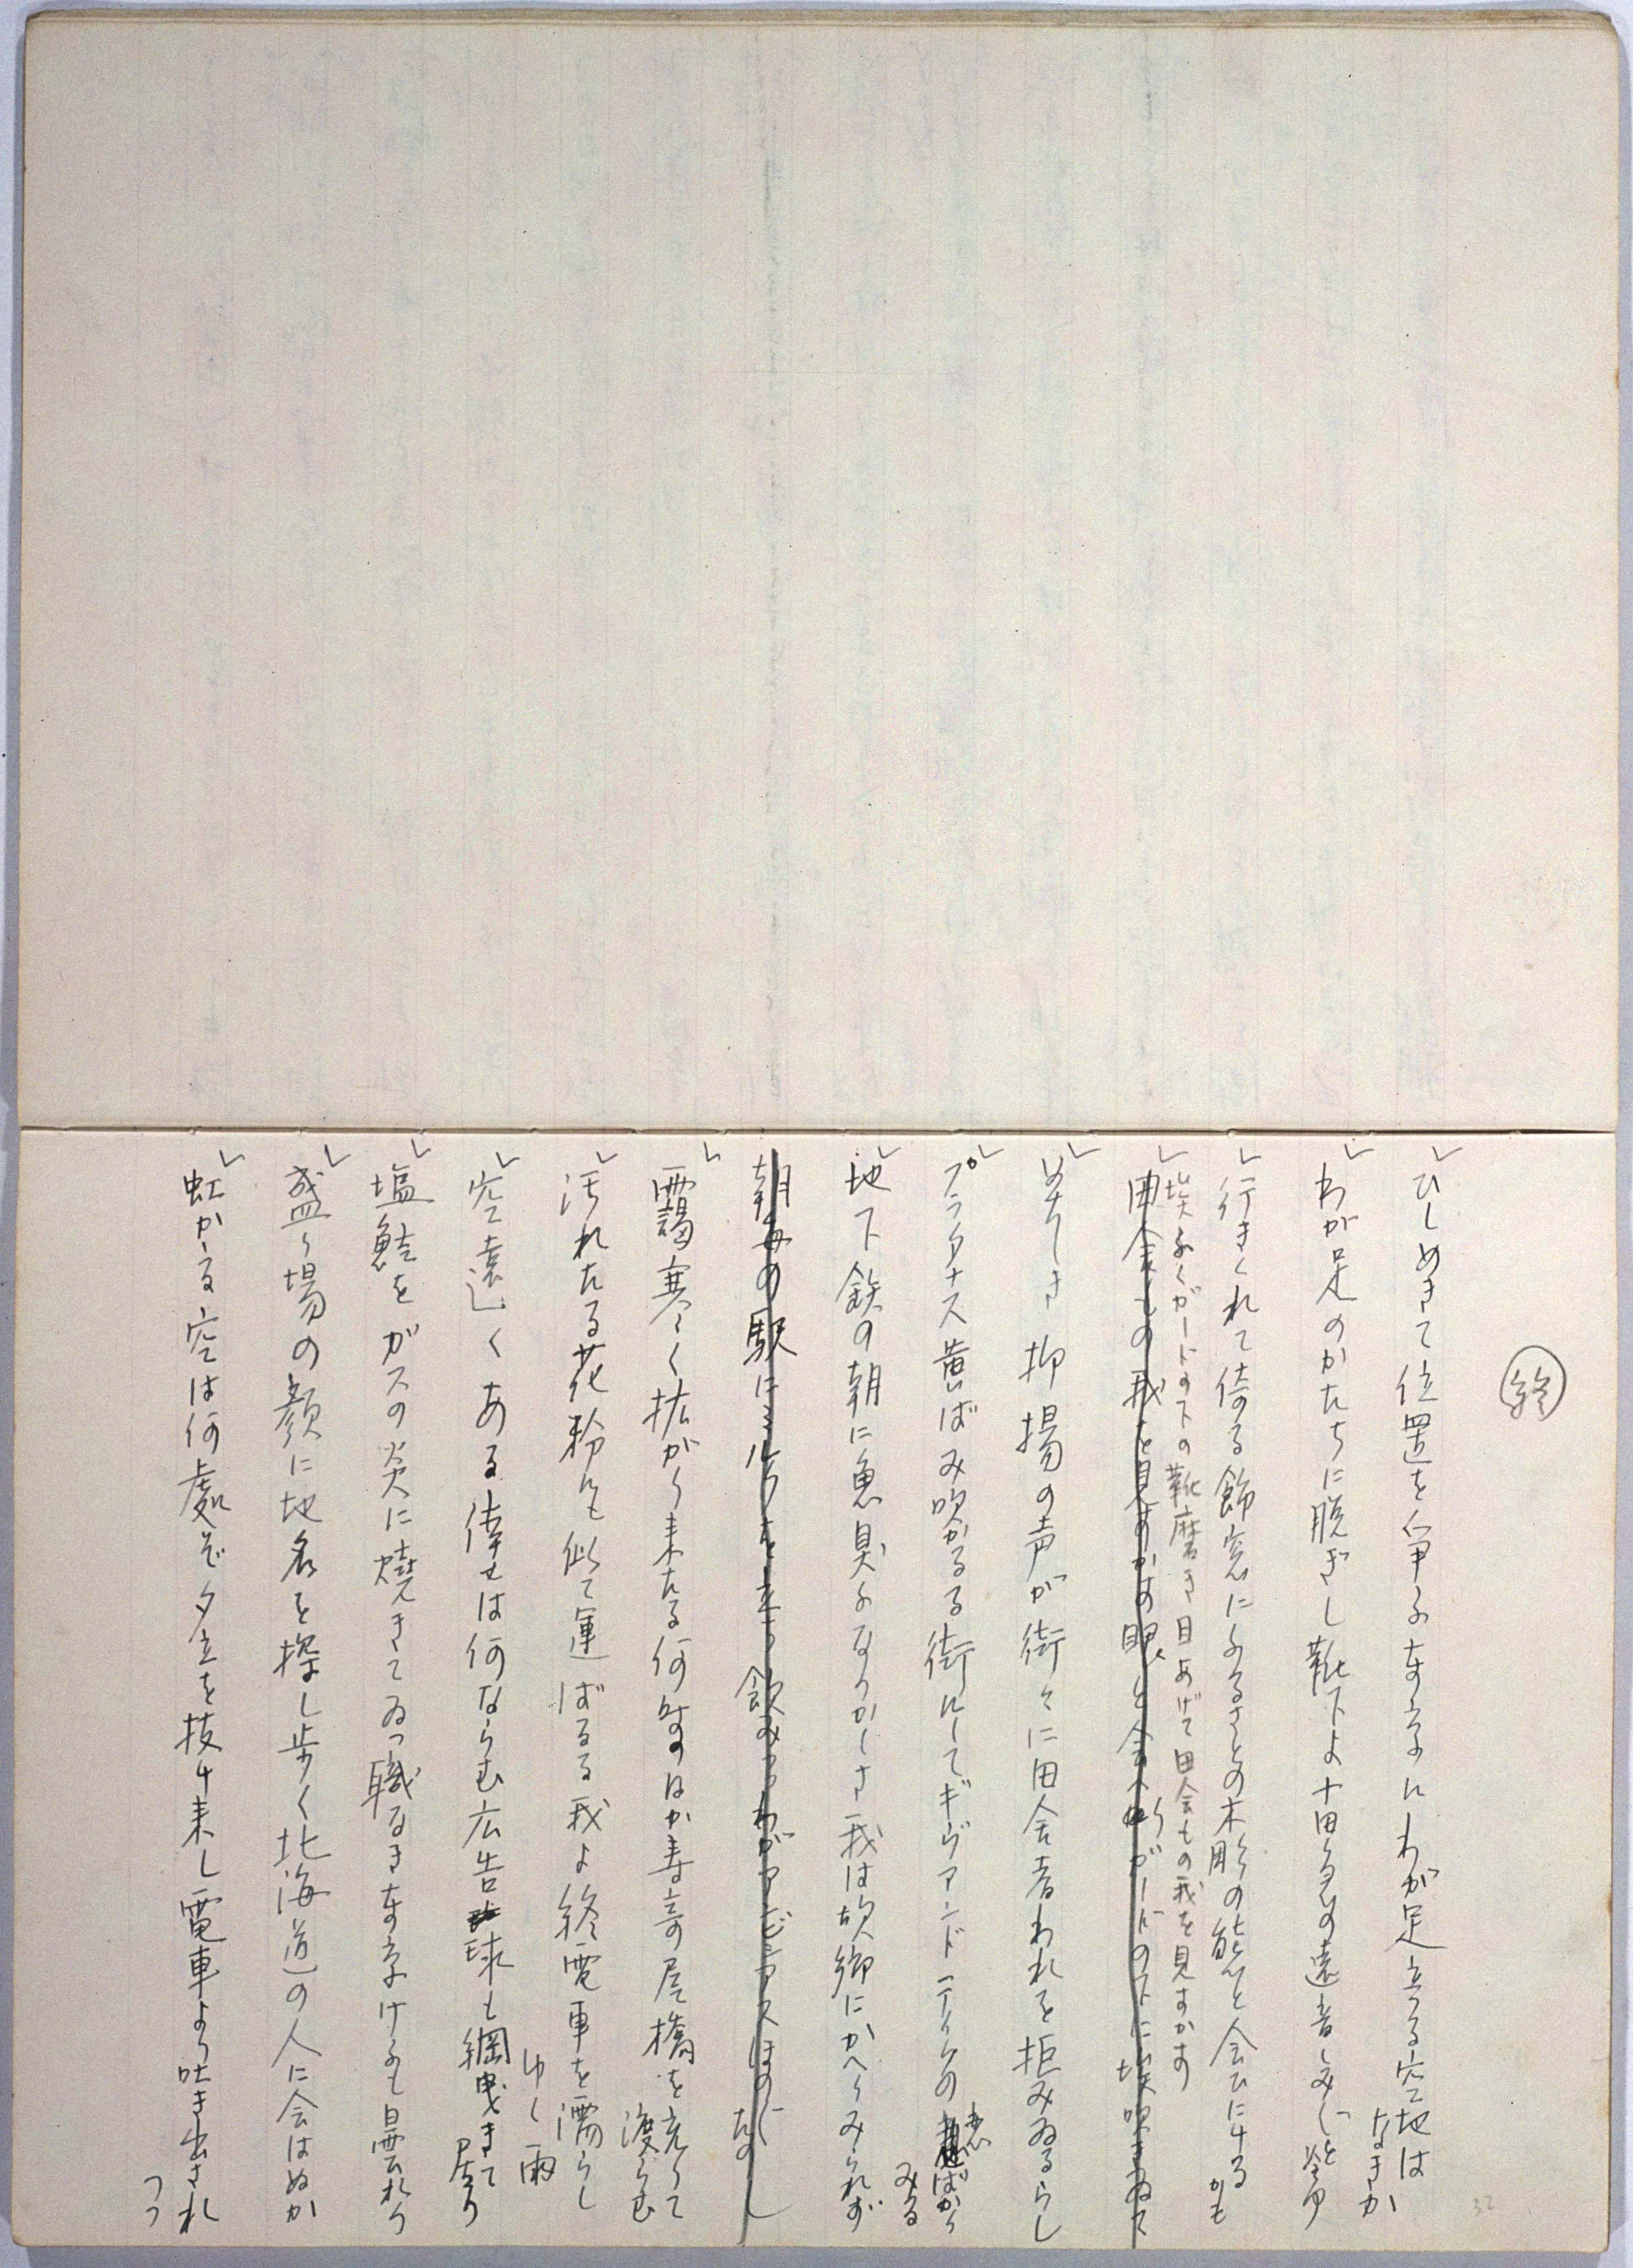 終
ひしめきて位置を争ふ東京にわが足立つる空地は
なきか
わが足のかたちに脱ぎし靴下よ十田の遠音しみじと冷ゆ
行きくれて倚る飾窓にふるさとの木彫の熊と会ひにける
かも
埃ふくガードの下の靴磨き目あげて田舎もの我を見すかす
田舎もの我を見すかす眼と会へりガードの下に埃吹きゐて
抑揚の声が街々に田舎者われを拒みゐるらし
プラタナス黄ばみ吹かるる街にしてギヴアンドテイクの
恋ばかり
みる
地下鉄の朝に魚臭ふなつかしさ我は故郷にかへりみられず
朝毎の駅にミルクを立つ飲みつつわがアンビシアスほのに
たのし
靄寒く拡がり来たる何時の日か寿の尾橋を売りて
渡らむ
汚れたる花粉にも似て運ばるる我よ終電車を濡らし
ゆく雨
空遠くある倖せは何ならむ広告球も綱曳きて
居り
塩鮭をガスの炎に焼きてゐつ職なき東京けふも曇れり
盛り場の顔に地名を探し歩く北海道の人に会はぬか
虹かかる空は何處ぞ夕立を抜け来し電車より吐き出され
つつ
32